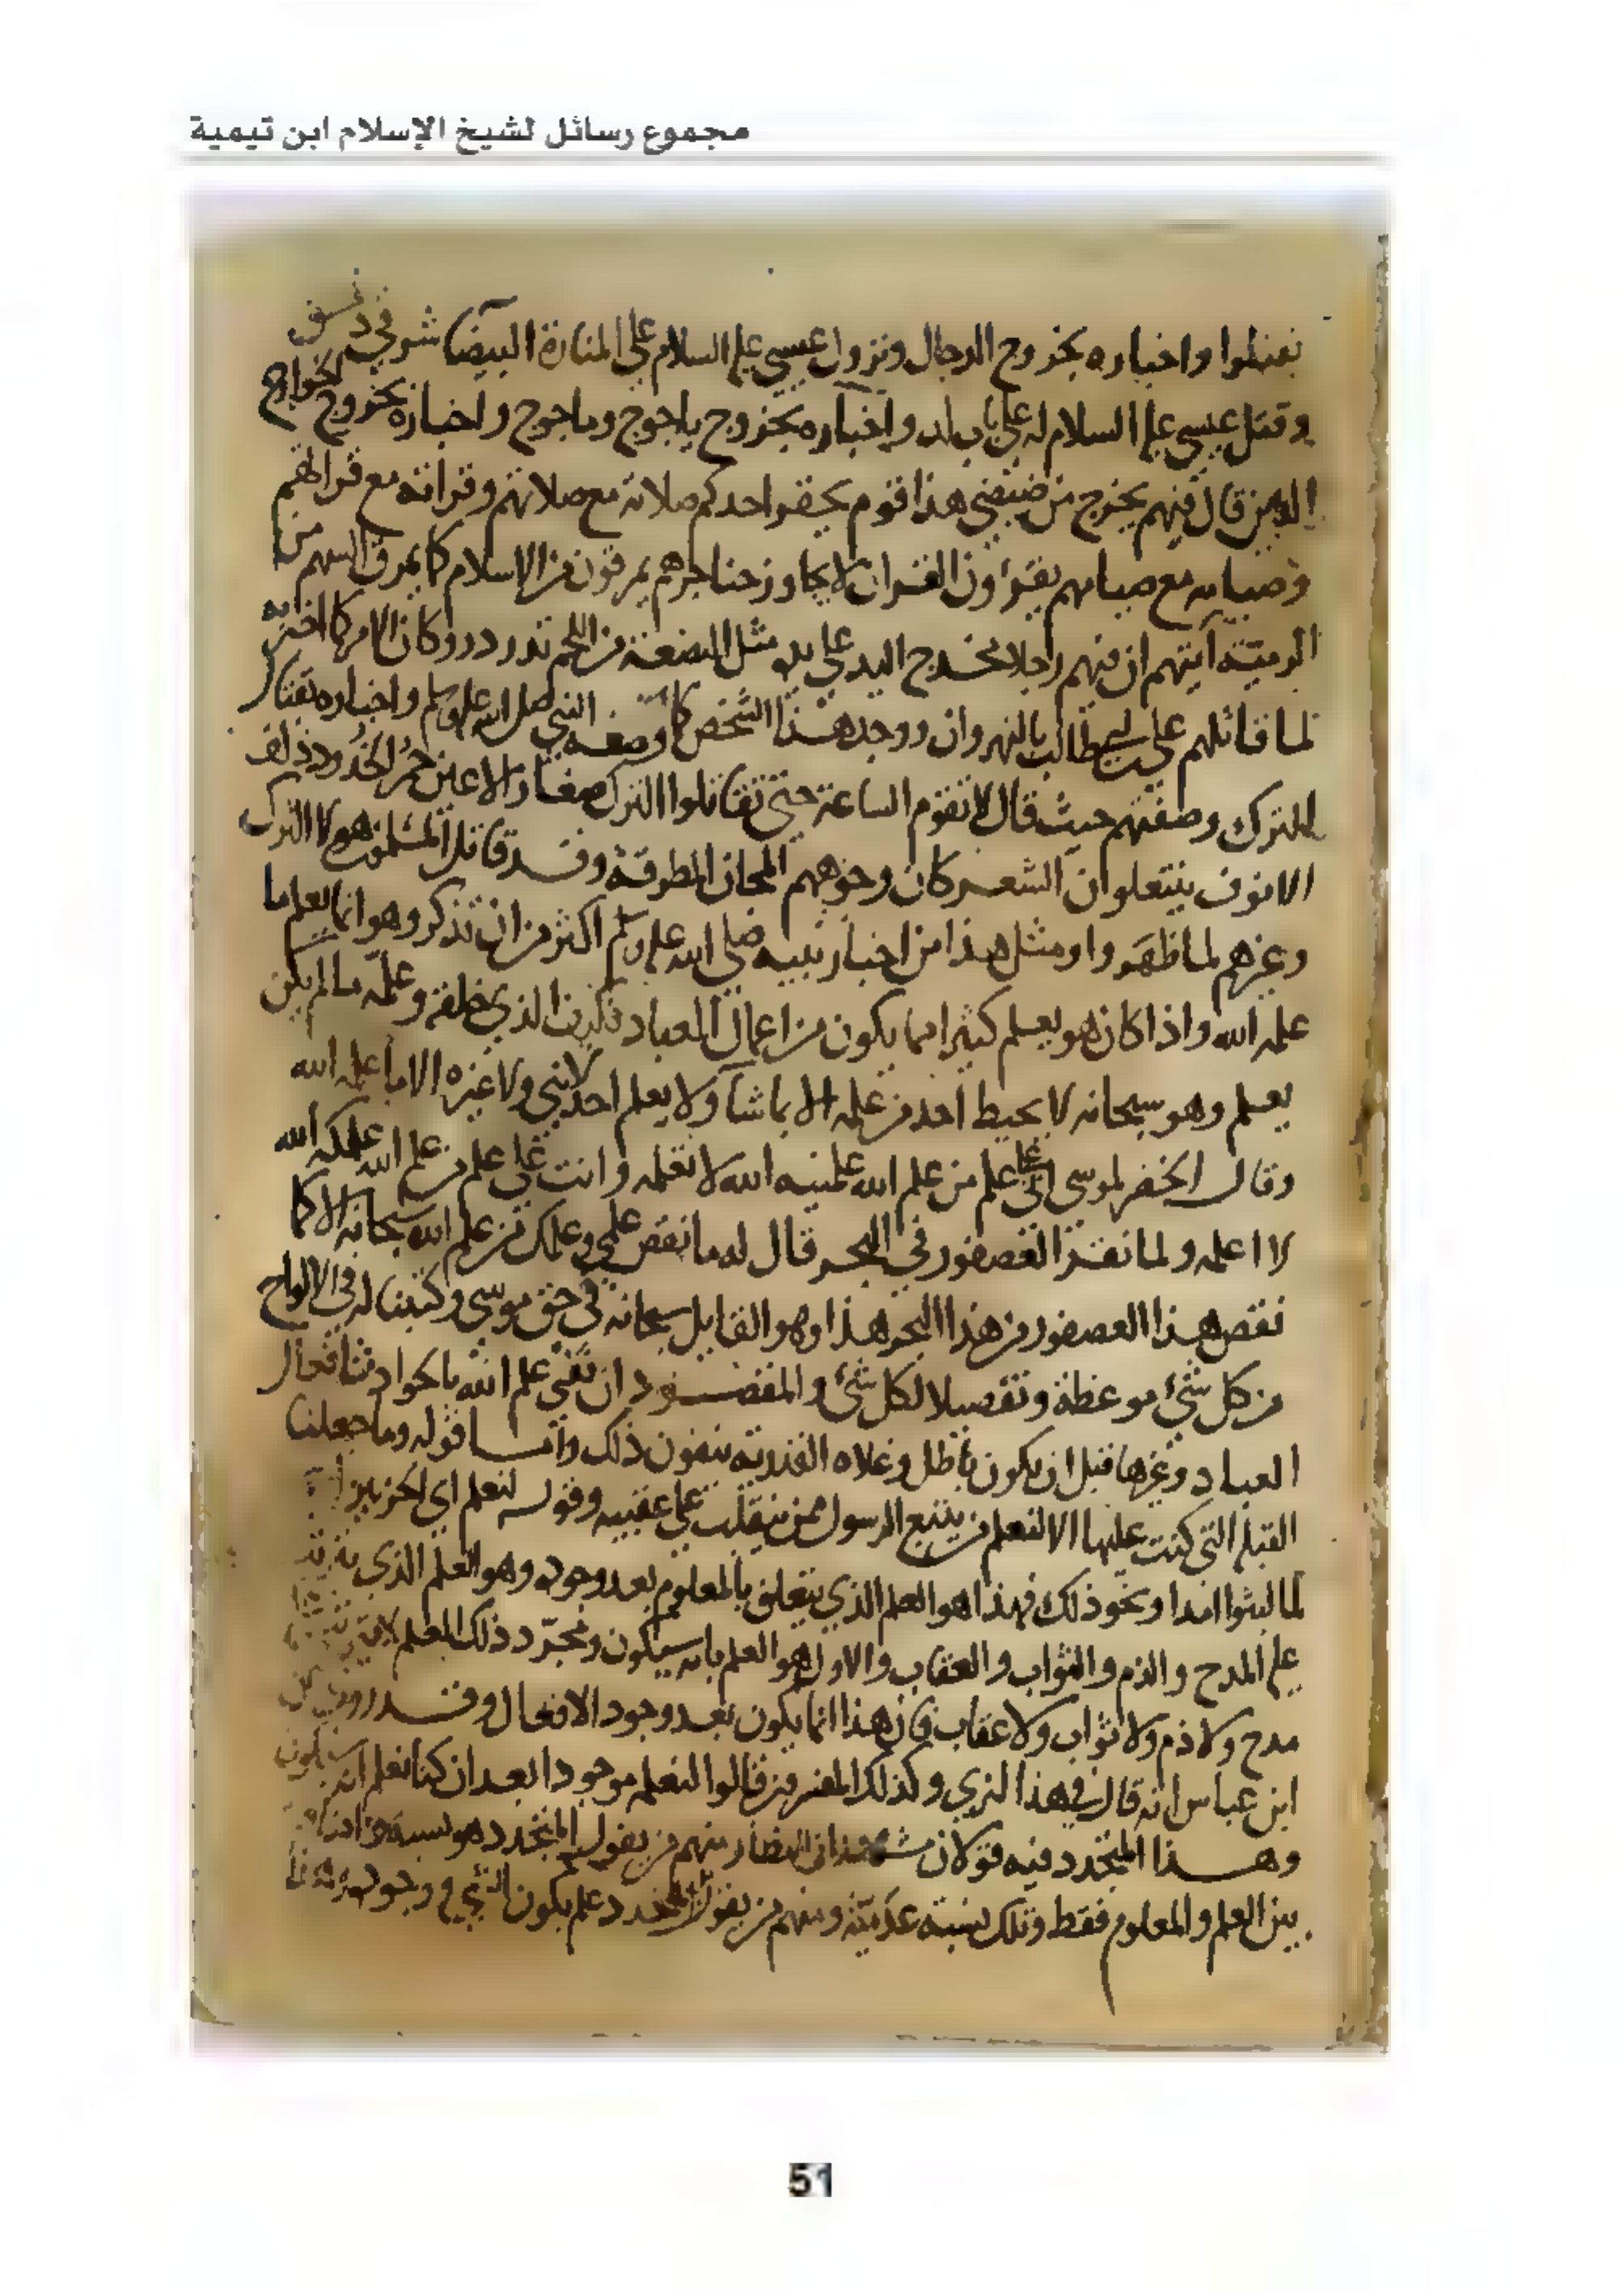 مجموع رسائل لشيخ الإسلام ابن تيمية
واخباره بخروج الدجال ونزول عيسى عليه السلام على المنارة البيضا شرقي دمشق
وقتل عيسى عليه السلام له على باب لد واخباره بخروج ياجوج وماجوج واخباره بخروج الخوارج
الذين قال فيهم يخرج من ضيضي هذا قوم يحقر احدكم صلاته مع صلاتهم وقراته مع قراتهم
وصيامه مع صيامهم يقرؤون القران لا يجاوز حناجرهم يمرقون من الاسلام كما يمرق السهم من
الرمية آيتهم ان فيهم رجلا مخدج اليد على يده مثل البضعة من اللحم تدردر وكان الامر كما اخبر به
لما قاتلهم علي بن ابي طالب بالنهروان ووجد هذا الشخص كما وصفه النبي صلى الله عليه وسلم واخباره بقتال
للترك وصفتهم حيث قال لا تقوم الساعة حتى تقاتلوا الترك صغار الاعين حمر الخدود ذلف
الانوف ينتعلون الشعر كان وجوههم المجان المطرقة وقد قاتل المسلمون هولا الترك
وغيرهم لما ظهروا ومثل هذا من اخبار نبيه صلى الله عليه وسلم اكثر من ان تذكر وهو انما يعلم ما
علمه الله واذا كان هو يعلم كثيرا مما يكون من اعمال العباد فكيف الذي خلقه وعلمه ما لم يكن
يعلم وهو سبحانه لا يحيط احد من علمه الا بما شآ ولا يعلم احد لا نبي ولا غيره الا ما علمه الله
وقال الخضر لموسى اني على علم من علم الله علمنيه الله لا تعلمه وانت على علم من علم الله علمكه الله
لا اعلمه ولما نقر العصفور في البحر قال له ما نقص علمي وعلمك من علم الله سبحانه الا كما
نقص هذا العصفور من هذا البحر هذا وهو القايل سبحانه في حق موسى وكتبنا له في الالواح
من كل شئ موعظة وتفصيلا لكل شئ والمقصود ان نفي علم الله بالحوادث افعال
العباد وغيرها قبل ان يكون باطل وغلاه القدرية ينفون ذلك واما قوله وما جعلنا
القبلة التي كنت عليها الا لنعلم من يتبع الرسول ممن ينقلب على عقبيه وقوله لنعلم اي الحزبين
لما لبثوا امدا ونحو ذلك فهذا هو العلم الذي يتعلق بالمعلوم بعد وجوده وهو العلم الذي
عليه المدح والذم والثواب والعقاب والاول هو العلم بانه سيكون ومجرد ذلك العلم لا
مدح ولا ذم ولا ثواب ولا عقاب فان هذا انما يكون بعد وجود الافعال وقد روي عن
ابن عباس انه قال في هذا لنري وكذلك المفسرين قالوا لنعلمه موجودا بعد ان كنا نعلم انه سيكون
وهذا المتجدد فيه قولان النظار منهم من يقول المتجدد هو نسبة
بين العلم والمعلوم فقط وتلك نسبة عدمية ومنهم من يقول المتجدد علم بكون الشي ووجوده
51